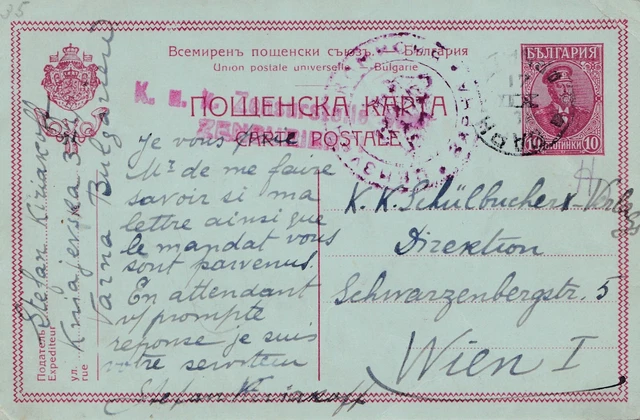 85
Всемиренъ пощенски съюзъ. — България
Union postale universelle — Bulgarie
БЪЛГАРИЯ
К. u. K. Zensurstelle
ПОЩЕНСКА КАРТА
CARTE POSTALE
10 СТОТИНКИ 10
Je vous prie
Mr de me faire
savoir si ma
lettre ainsi que
le mandat vous
sont parvenus.
En attendant
v/ prompte
reponse je suis
votre serviteur
Stefan Kiriakoff
K. K. Schülbücher-Verlags
Direktion
Schwarzenbergstr. 5
Wien I
Податель
Expéditeur
Stefan Kiriakoff
ул.
rue
Kniajevska
Varna Bulgarien